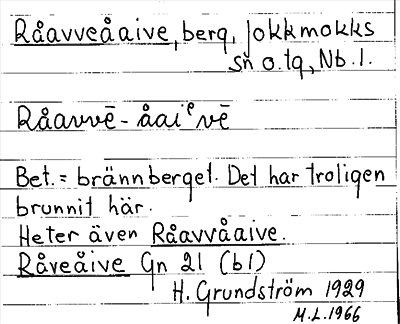 Råavveåaive, berg, Jokkmokks
sn o.tg, Nb.l.
Råavvē - åaiᵉvē
Bet. = brännberget. Det har troligen
brunnit här.
Heter även Råavvåaive.
Råveåive Gn 21 (b1)
H. Grundström 1929
M.L.1966